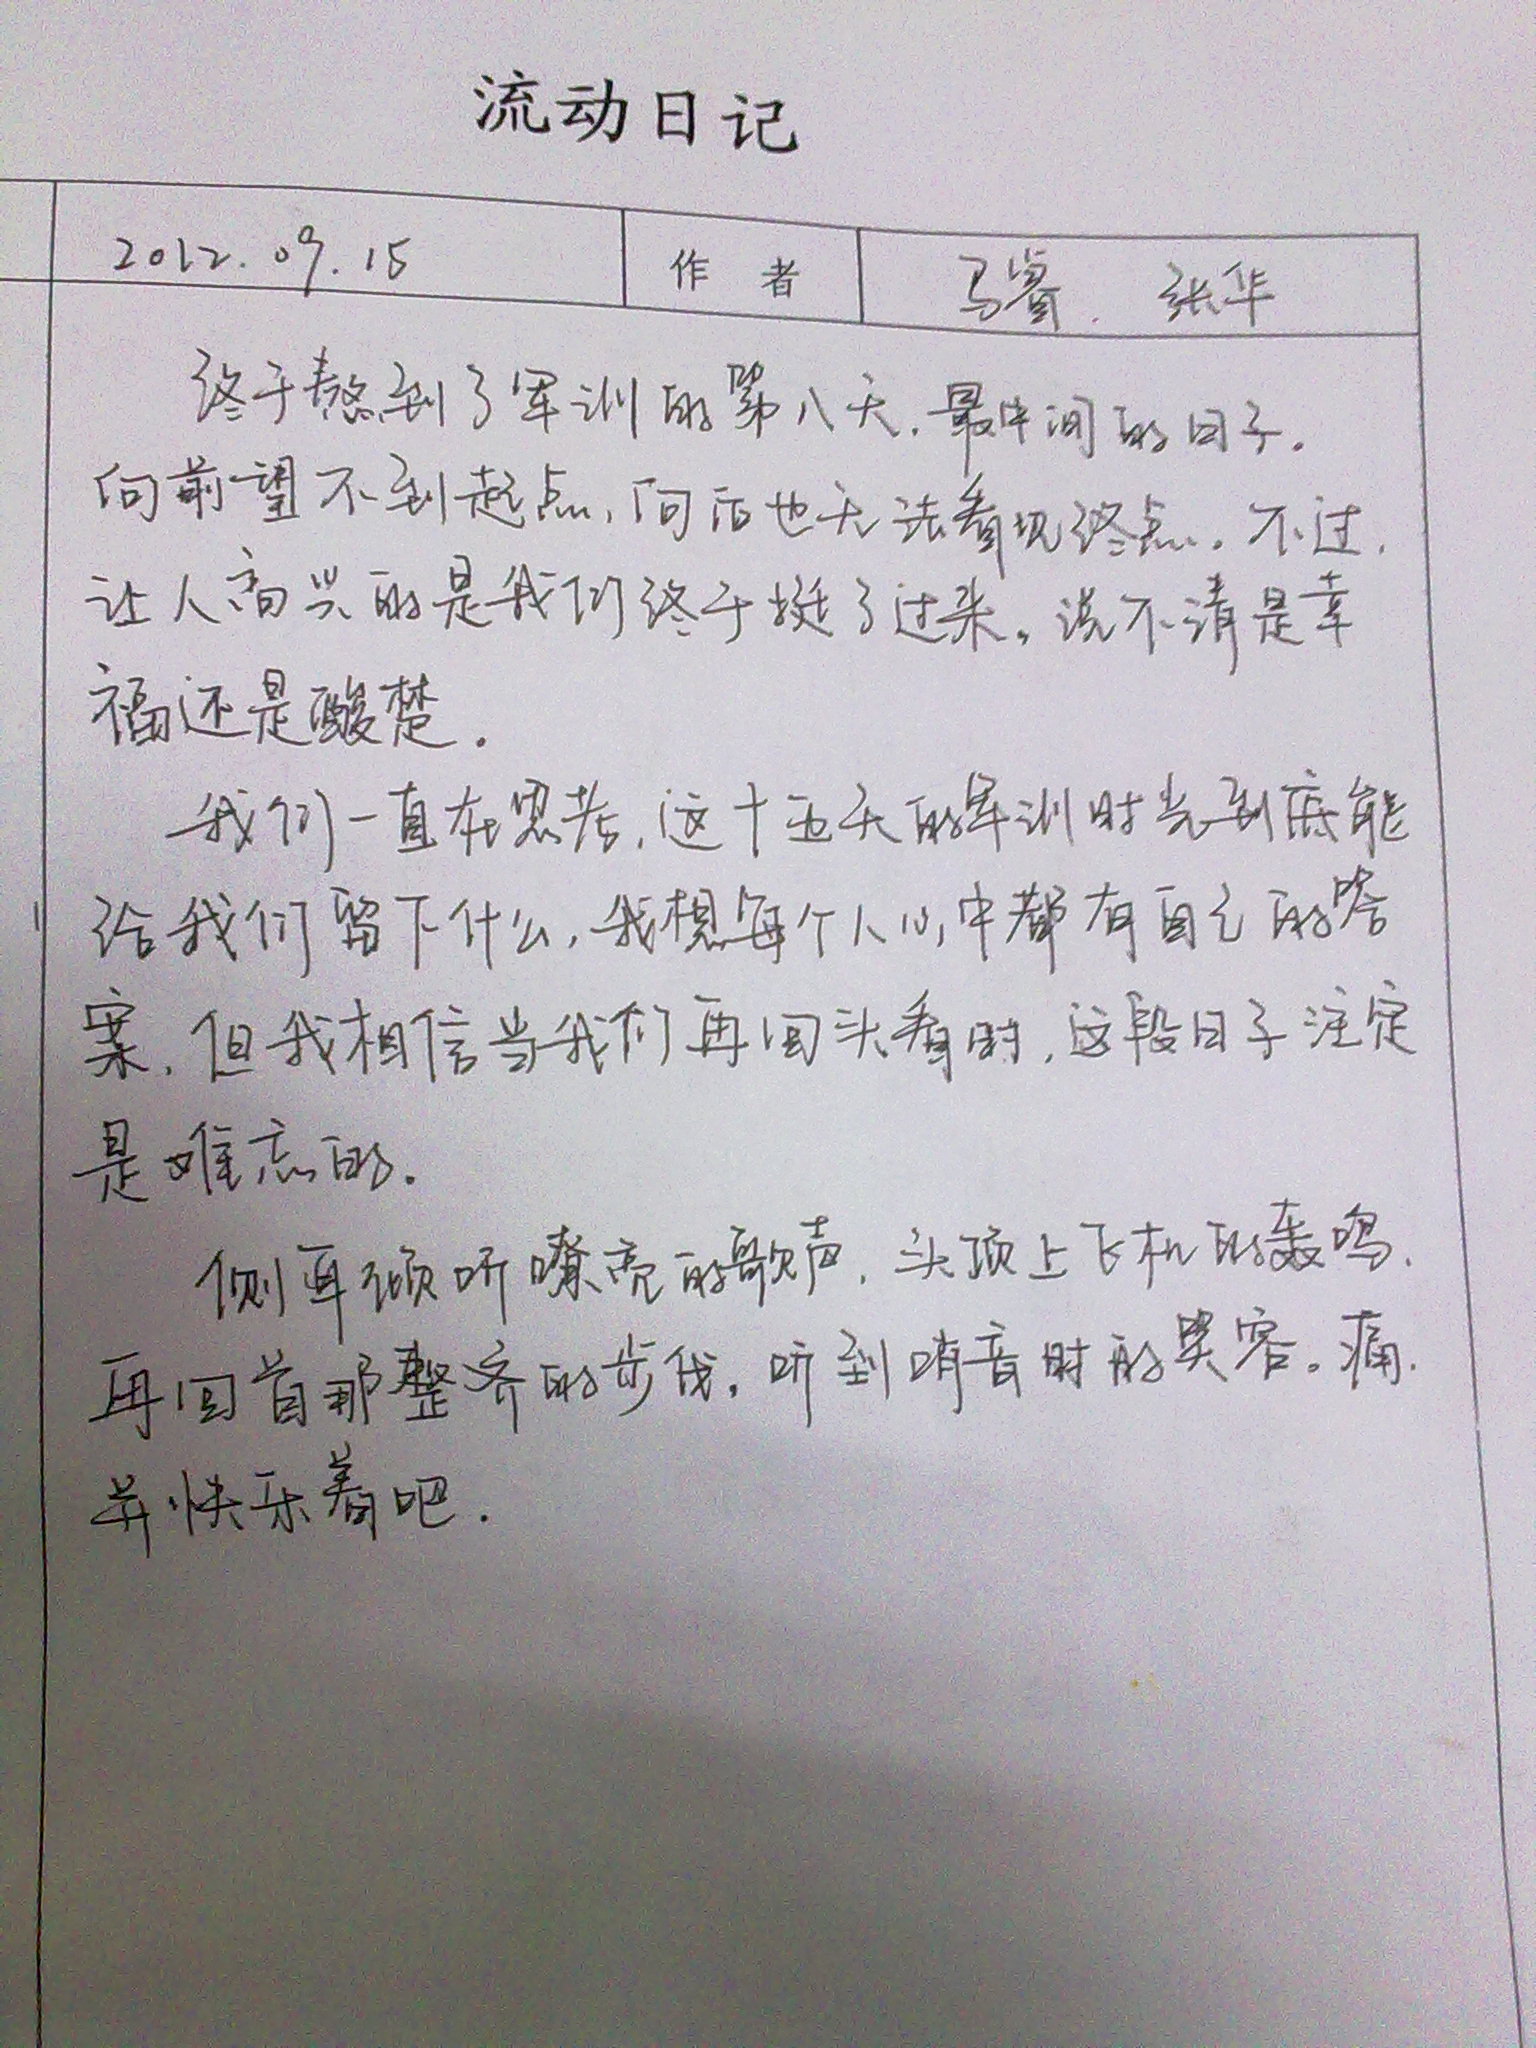 流动日记
2012.09.15 作者 马睿. 张华
终于熬到了军训的第八天,最中间的日子。
向前望不到起点,向后也无法看见终点。不过,
让人高兴的是我们终于挺了过来。说不清是幸
福还是酸楚.
我们一直在思考,这十五天的军训时光到底能
给我们留下什么,我想每个人心中都有自己的答
案,但我相信当我们再回头看时,这段日子注定
是难忘的.
侧耳倾听嘹亮的歌声,头顶上飞机的轰鸣,
再回首那整齐的步伐,听到哨音时的笑容。痛,
并快乐着吧.